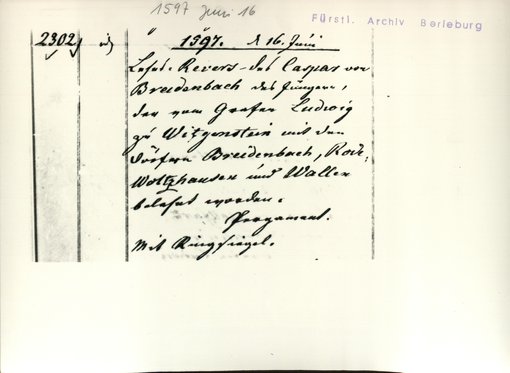 1597 Juni 16
Fürstl. Archiv Berleburg
2302
1597. d 16. Juni
Lehns-Revers des Caspar von
Breidenbach des Jüngern,
der vom Grafen Ludwig
zu Witgenstein mit den
Dörfern Breidenbach, Rode,
Woltzhausen und Wallen
belehnt worden.
Pergament.
Mit Ringsiegel.